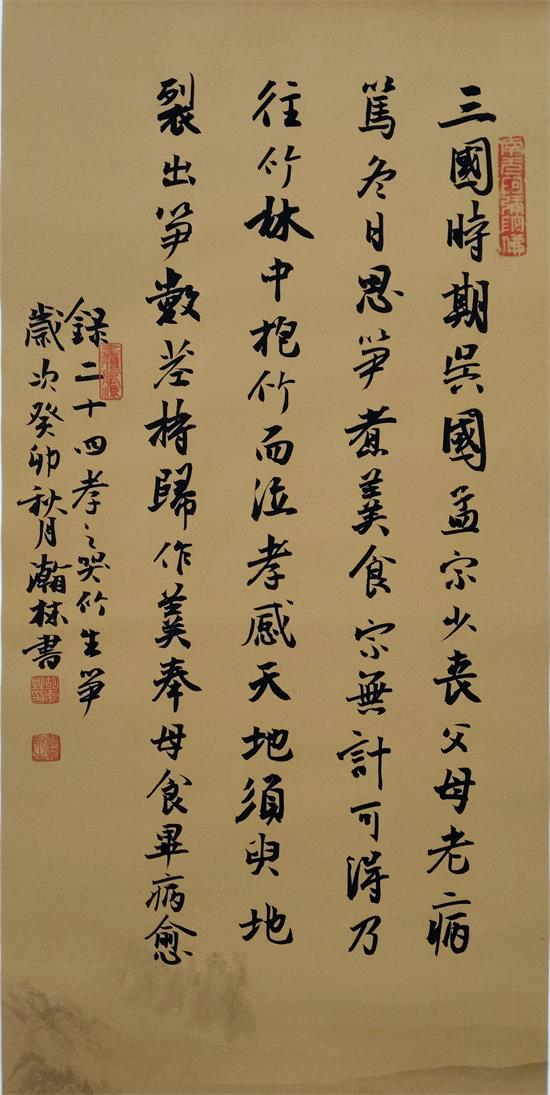 三國時期吳國孟宗少喪父母老病
篤冬日思笋煮羹食宗無計可得乃
往竹林中抱竹而泣孝感天地須臾地
裂出笋數莖持歸作羹奉母食畢病愈
錄二十四孝之哭竹生笋
歲次癸卯秋月瀚林書
南无阿彌陀佛